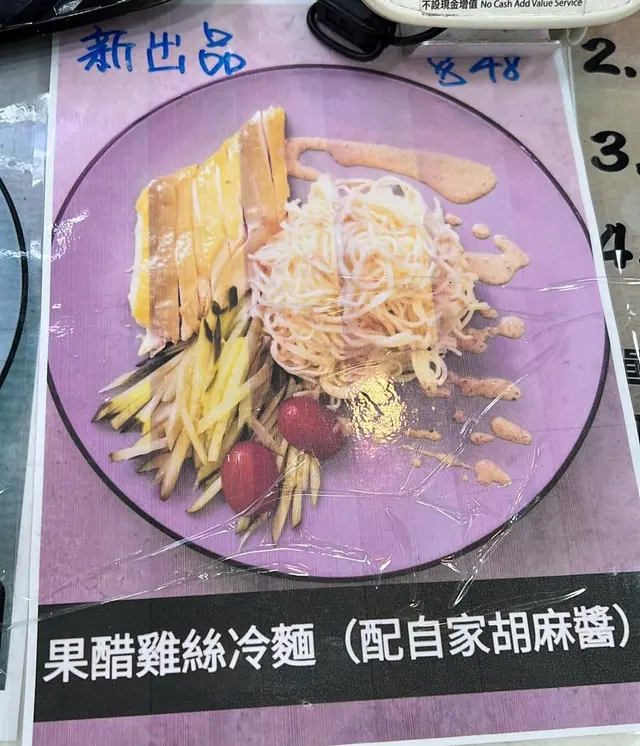 不設現金增值 No Cash Add Value Service
新出品 $48
2.
3.
4.
果醋雞絲冷麵（配自家胡麻醬）